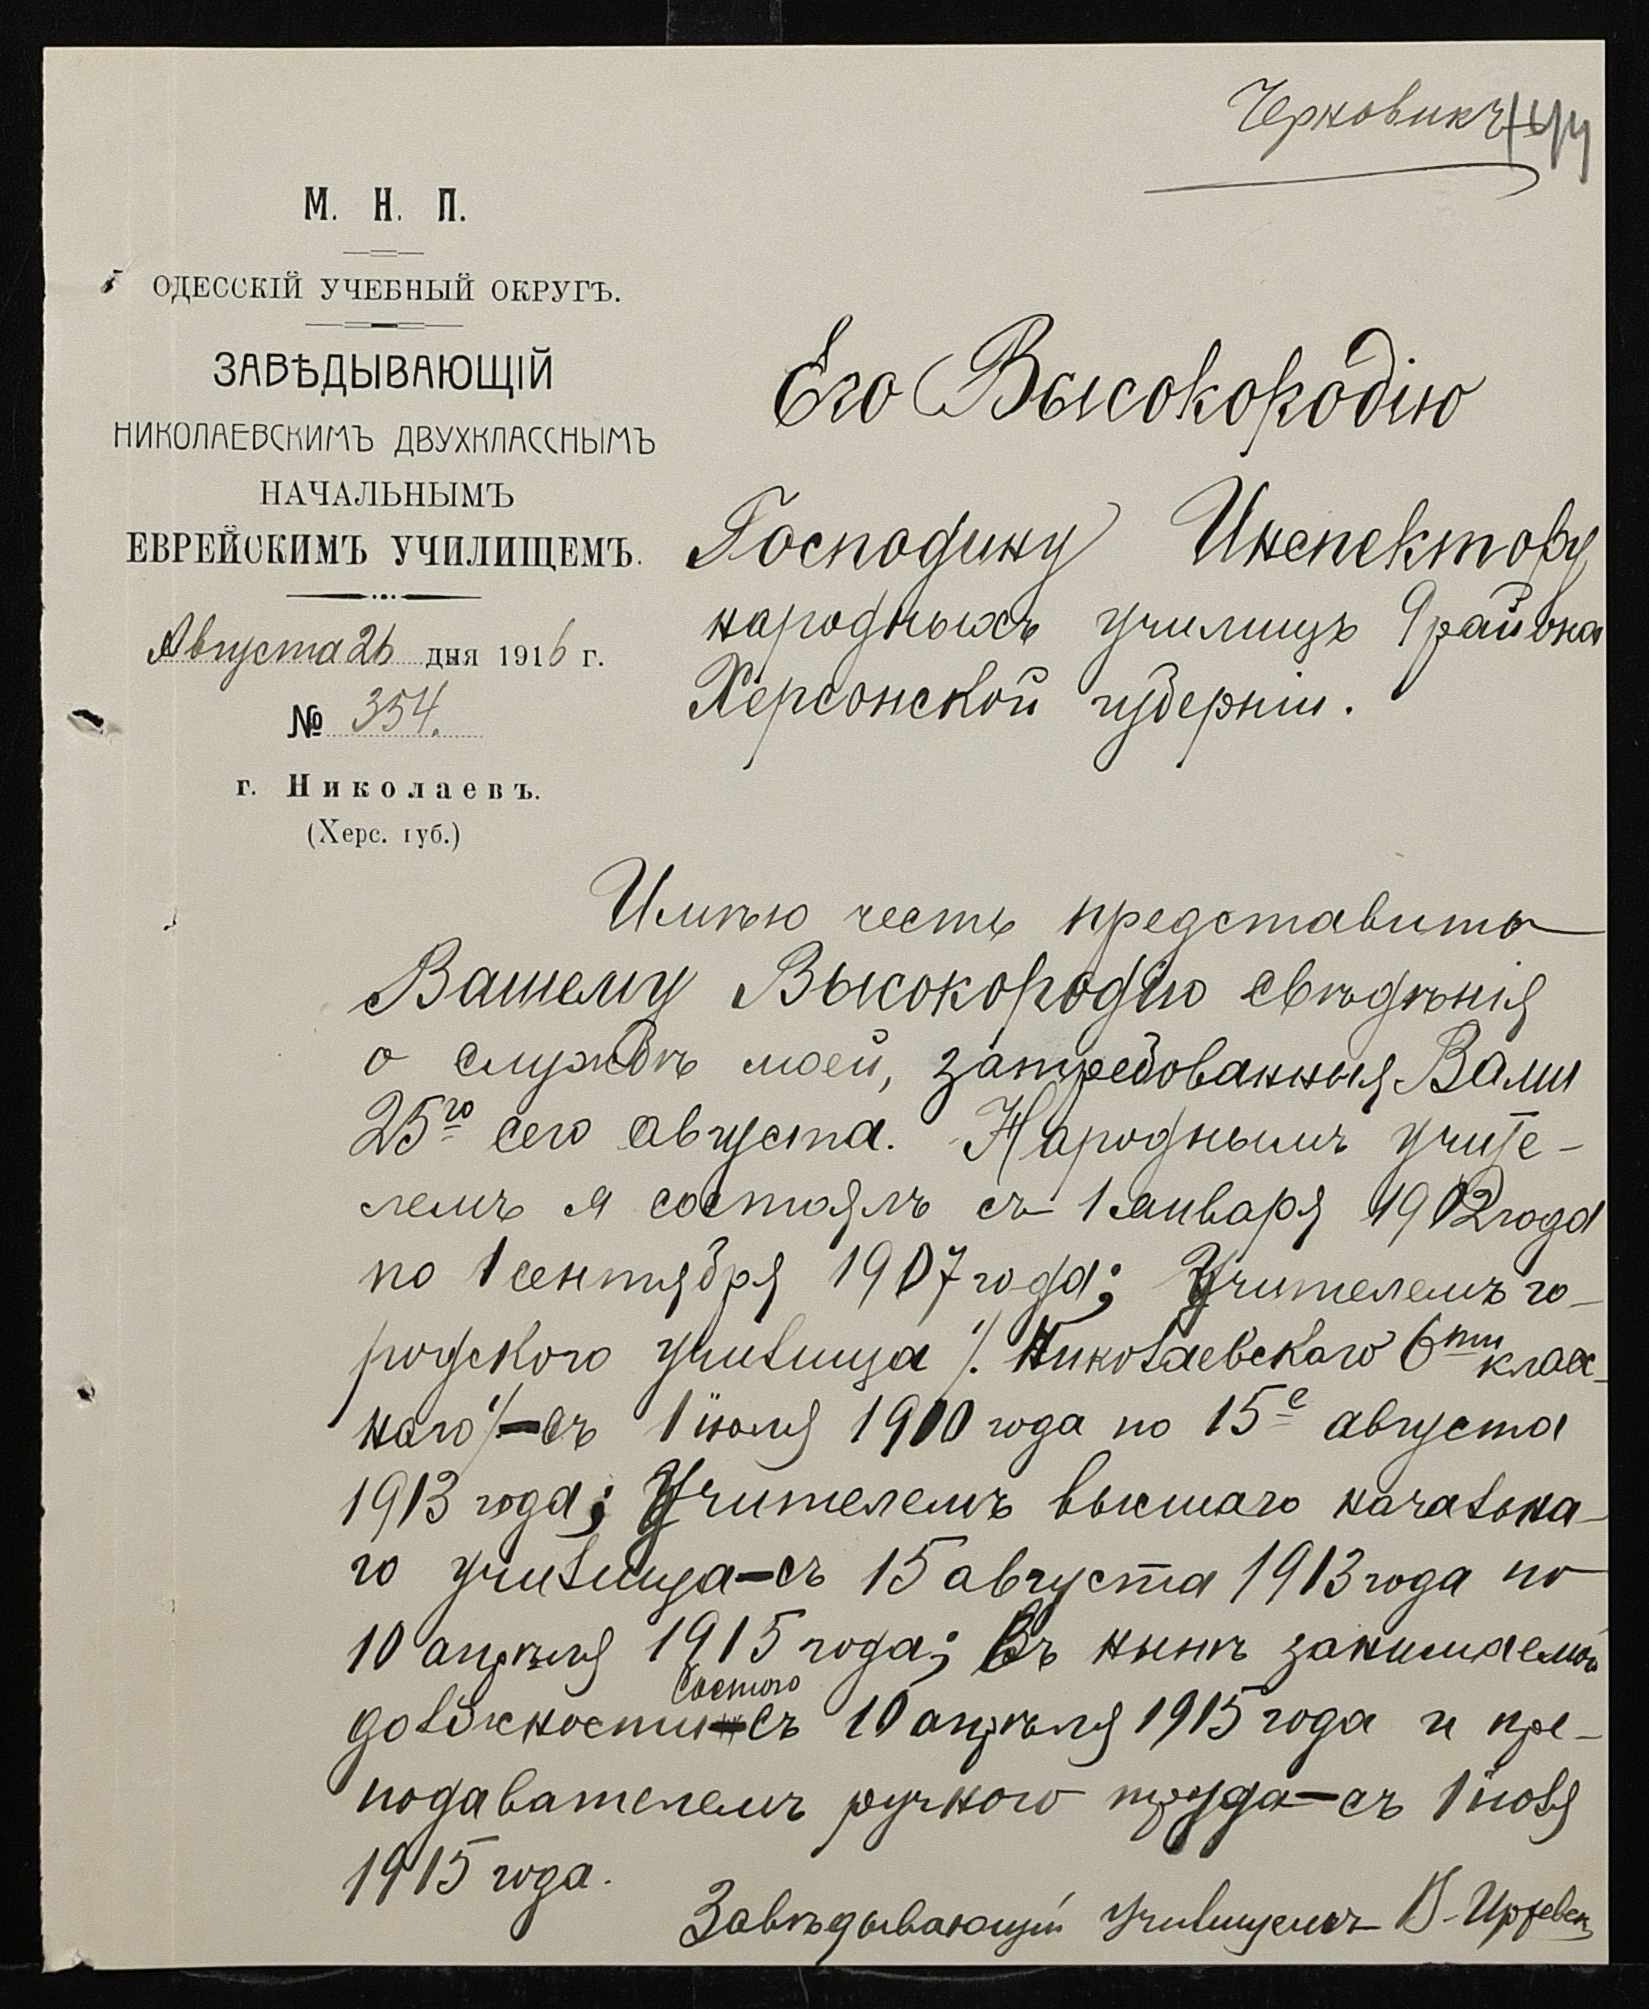 Черновикъ
М. Н. П.
ОДЕССКІЙ УЧЕБНЫЙ ОКРУГЪ.
ЗАВѢДЫВАЮЩІЙ
НИКОЛАЕВСКИМЪ ДВУХКЛАССНЫМЪ
НАЧАЛЬНЫМЪ
ЕВРЕЙСКИМЪ УЧИЛИЩЕМЪ.
Августа 26 дня 1916 г.
№ 354.
г. Николаевъ.
(Херс. губ.)
Его Высокородію
Господину Инспектору
народныхъ училищъ 9 района
Херсонской губерніи.
Имѣю честь представить
Вашему Высокородію свѣдѣнія
о службѣ моей, затребованныя Вами
25го сего августа. Народнымъ учите-
лемъ я состоялъ съ 1 января 1902 года
по 1 сентября 1907 года; Учителемъ го-
родского училища /. Николаевскаго 6ти класс-
наго /-съ 1 іюля 1910 года по 15е августа
1913 года; Учителемъ высшаго начальна-
го училища-съ 15 августа 1913 года по
10 апрѣля 1915 года; Въ нынѣ занимаемой
должности состою съ 10 апрѣля 1915 года и пре-
подавателемъ ручного труда-съ 1 іюля
1915 года.
Завѣдывающій училищемъ В.